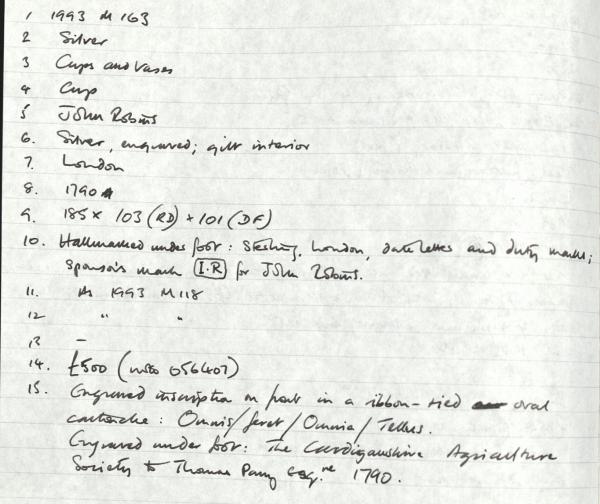 1 1993 M 163
2 Silver
3 Cups and Vases
4 Cup
5 John Robins
6. Silver, engraved; gilt interior
7. London
8. 1790
9. 185 x 103 (RD) + 101 (DF)
10. Hallmarked under foot: Sterling, London, date letter and duty marks;
Sponsor's mark I.R for John Robins.
11. As 1993 M 118
12 " "
13 –
14. £500 (
056407)
15. Engraved inscription on front in a ribbon-tied oval
cartouche: Omnis/feret/Omnia/Tellus.
Engraved under foot: The Cardiganshire Agriculture
Society to Thomas Parry Esq.re 1790.